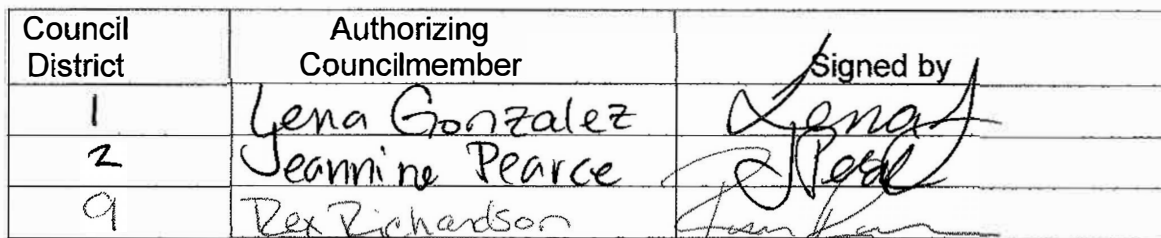 Council District Authorizing Councilmember Signed by
1 Lena Gonzalez Lena
2 Jeannine Pearce
9 Rex Richardson